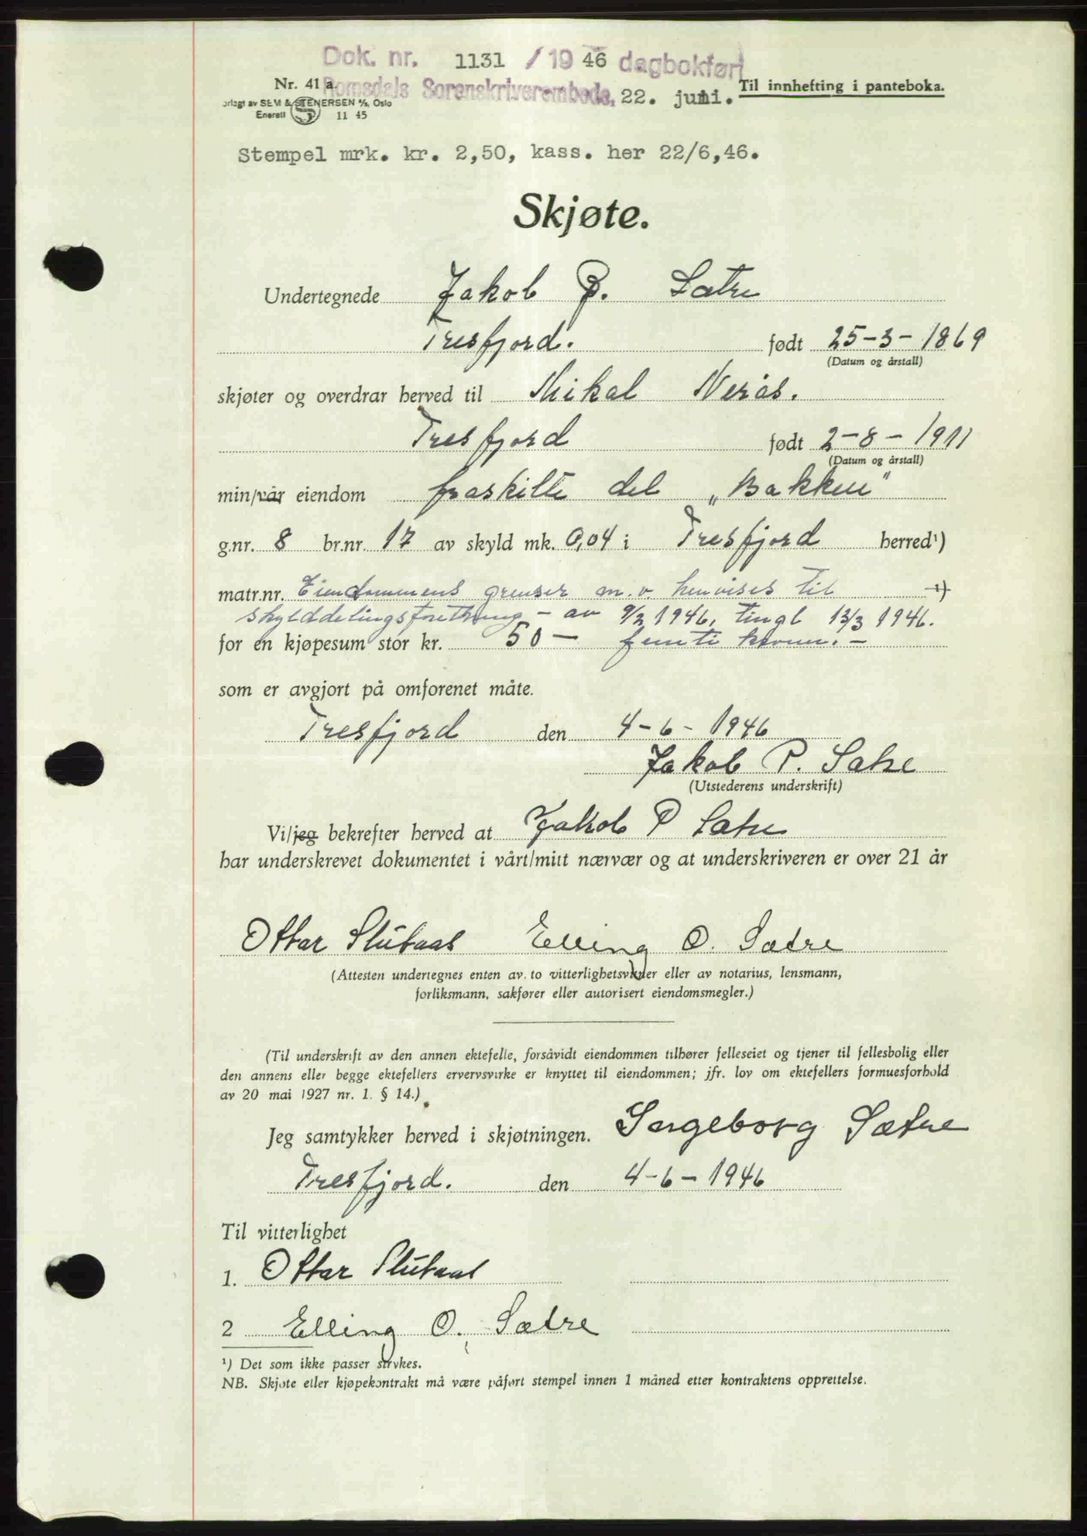 Dok. nr. 1131 / 19 46 dagbokført
Romsdals Sorenskriverembede, 22. juni.
Nr. 41 a.
Til innhefting i panteboka.
orlagt av SEM & STENERSEN A/S, Oslo
Enerett S 11 45
Stempel mrk. kr. 2,50, kass. her 22/6,46.
Skjøte.
Undertegnede Jakob P. Sætre
Tresfjord. født 25-3-1869
(Datum og årstall)
skjøter og overdrar herved til Mikal Nerås.
Tresfjord født 2-8-1911
(Datum og årstall)
min/vår eiendom fraskilte del „Bakken"
g.nr. 8 br.nr. 17 av skyld mk. 0,04 i Tresfjord herred¹)
matr.nr. Eiendommens grenser m.v henvises til ¹)
skylddelingsforretning - av 9/2 1946, tingl 13/3 1946.
for en kjøpesum stor kr. 50 — femti kroner. —
som er avgjort på omforenet måte.
Tresfjord den 4-6-1946
Jakob P. Satre
(Utstederens underskrift)
Vi/jeg bekrefter herved at Jakob P Satre
har underskrevet dokumentet i vårt/mitt nærvær og at underskriveren er over 21 år
Ottar Elling O. Sætre
(Attesten undertegnes enten av to vitterlighetsvitner eller av notarius, lensmann,
forliksmann, sakfører eller autorisert eiendomsmegler.)
(Til underskrift av den annen ektefelle, forsåvidt eiendommen tilhører felleseiet og tjener til fellesbolig eller
den annens eller begge ektefellers ervervsvirke er knyttet til eiendommen; jfr. lov om ektefellers formuesforhold
av 20 mai 1927 nr. 1. § 14.)
Jeg samtykker herved i skjøtningen. Ingeborg Sætre
Tresfjord. den 4-6-1946
Til vitterlighet
1. Ottar
2 Elling O. Sætre
¹) Det som ikke passer strykes.
NB. Skjøte eller kjøpekontrakt må være påført stempel innen 1 måned etter kontraktens opprettelse.